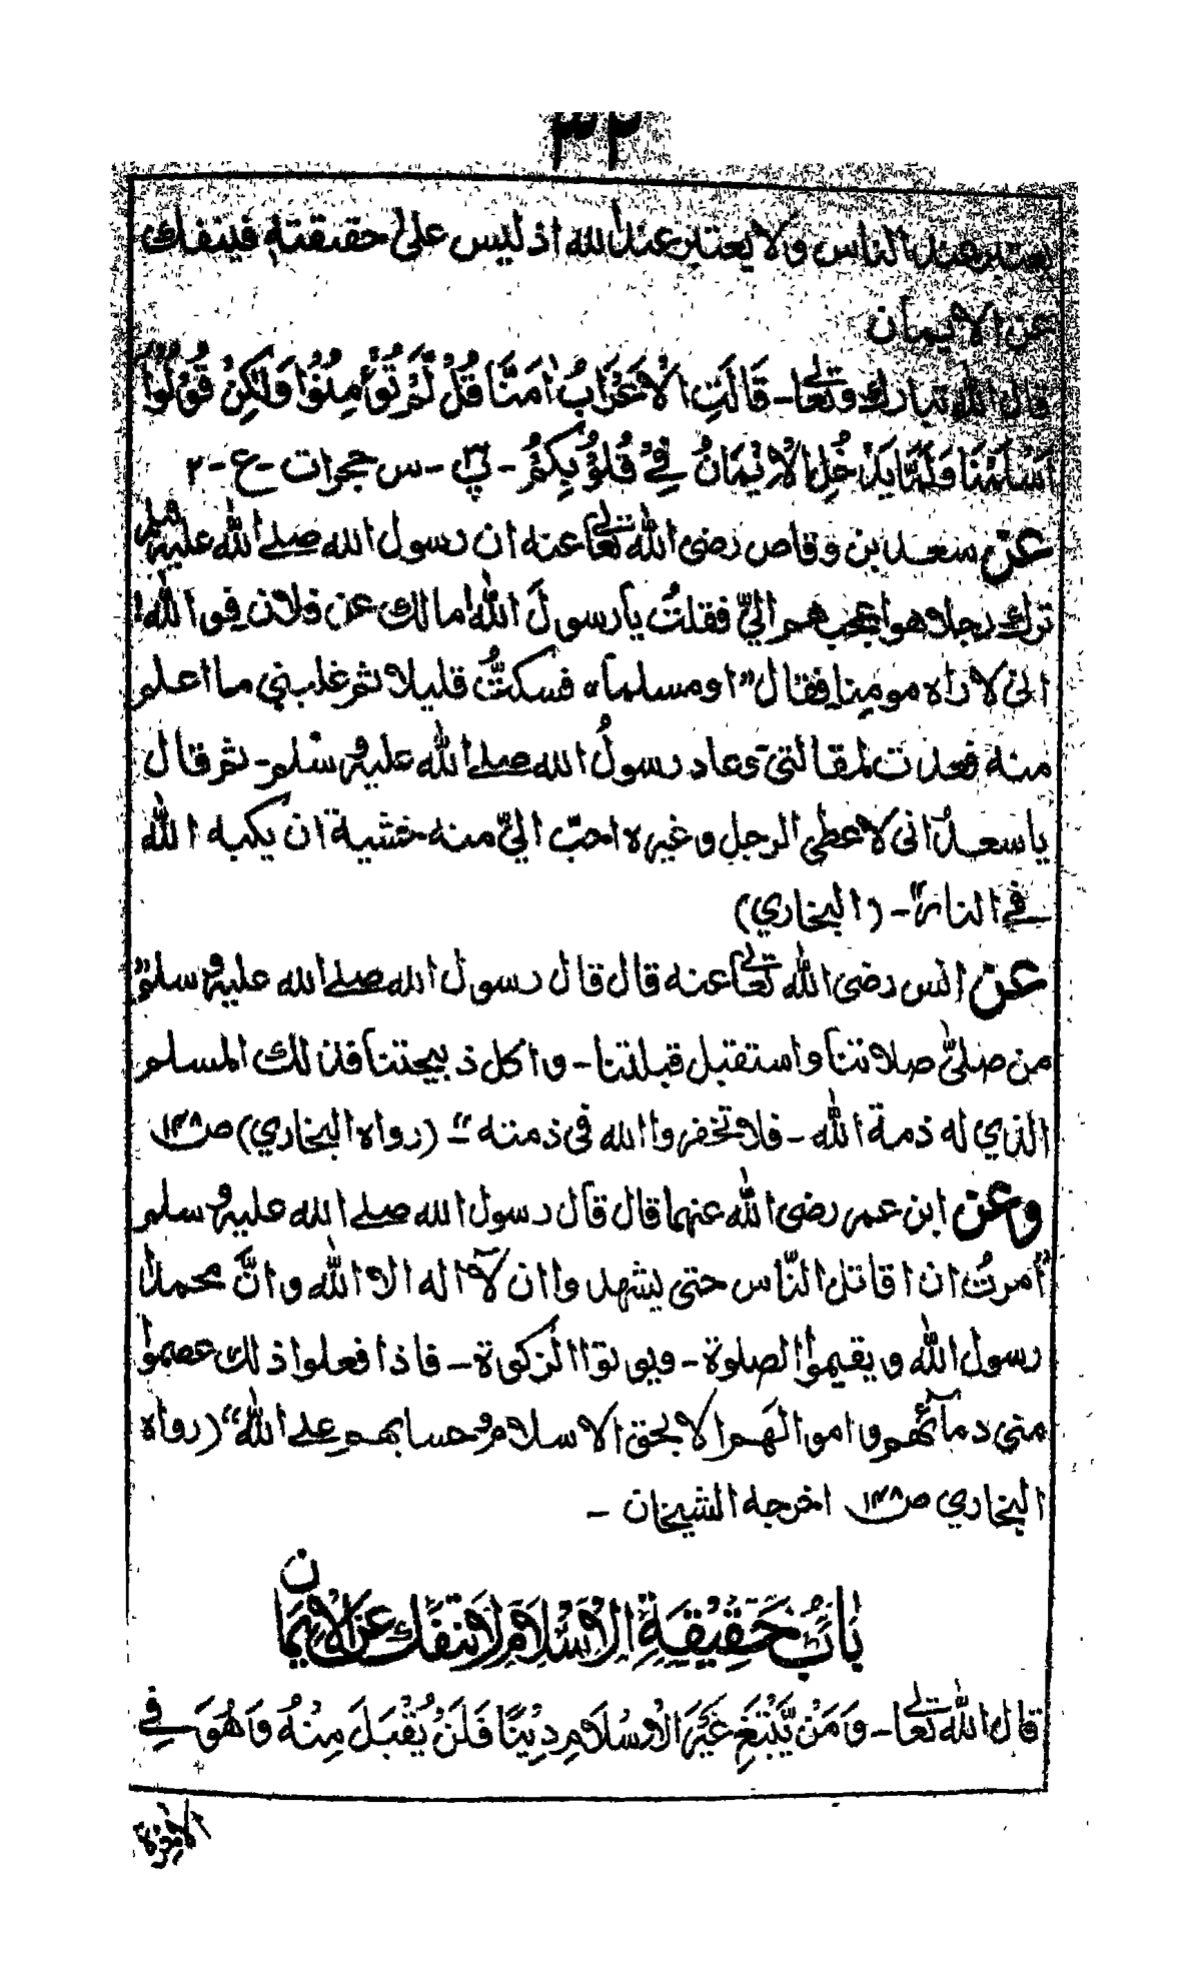 ٣٢
يعتبر عند الناس ولا يعتبر عند الله اذ ليس على حقيقتهٖ فينفك
عن الايمان
قال الله تبارك وتعالى - قَالَتِ الْاَعْرَابُ اٰمَنَّا قُلْ لَّمْ تُؤْمِنُوْا وَلٰكِنْ قُوْلُوْٓا
اَسْلَمْنَا وَلَمَّا يَدْخُلِ الْاِيْمَانُ فِيْ قُلُوْبِكُمْ - پ٢٦ - س حجرات - ع - ٢
عن سعد بن وقاص رضى الله تعالى عنه ان رسول الله صلے الله عليه وسلم
ترك رجلا هو اعجبهم اليّ فقلتُ يا رسولَ الله! مالك عن فلان فو الله!
انى لا راه مومنا فقال "او مسلما" فسكتُّ قليلا ثم غلبني ما اعلم
منه فعدت لمقالتى وعاد رسولُ الله صلے الله عليه وسلم - ثم قال
يا سعدُ انى لاعطى الرجل وغيره احبّ اليّ منه خشية ان يكبه الله
فے النار" - (البخاري)
عن انس رضى الله تعالى عنه قال قال رسول الله صلے الله عليه وسلم"
من صلىّ صلاتنا واستقبل قبلتنا - واكل ذبيحتنا فذلك المسلم
الذي له ذمة الله - فلا تخفروا الله فى ذمته" - (رواه البخاري) ص١٢٨
وعن ابن عمر رضى الله عنهما قال قال رسول الله صلے الله عليه وسلم
"اُمرتُ ان اقاتل النّاس حتى يشهدوا ان لآ اله الا الله وانَّ محمداً
رسول الله ويقيموا الصلوة - ويوتوا الزكوة - فاذا فعلوا ذلك عصموا
منى دمآئهم واموالهَم الا بحق الاسلام وحسابهم علے الله" (رواه
البخاري ص١٢٨ اخرجه الشيخان -
بَابُ حَقِيْقَةِ الْاِسْلَامِ لَا تنفَكّ عَنِ الْاِيْمَان
قال الله تعالى - وَمَنْ يَّبْتَغِ غَيْرَ الْاِسْلَامِ دِيْنًا فَلَنْ يُّقْبَلَ مِنْهُ وَهُوَ فِے
الْاٰخِرَةِ